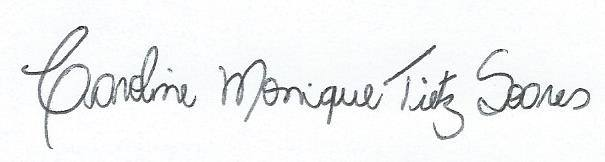 Caroline Monique Tietz Soares